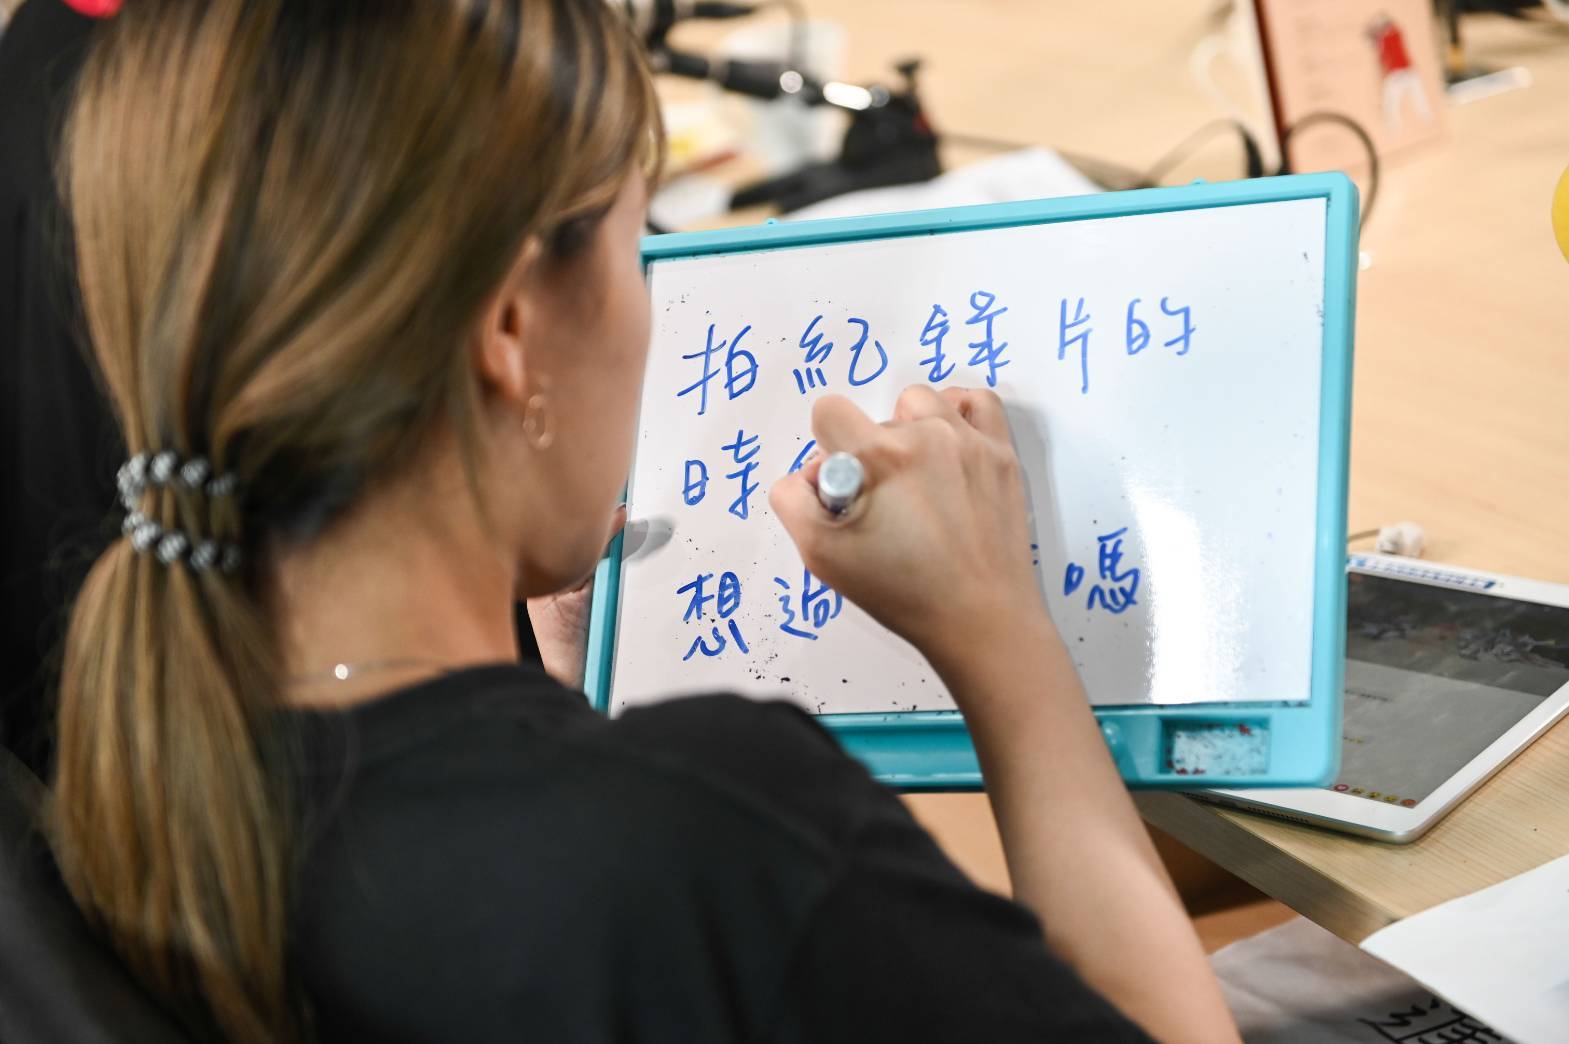 拍紀錄片的
時
想過 嗎